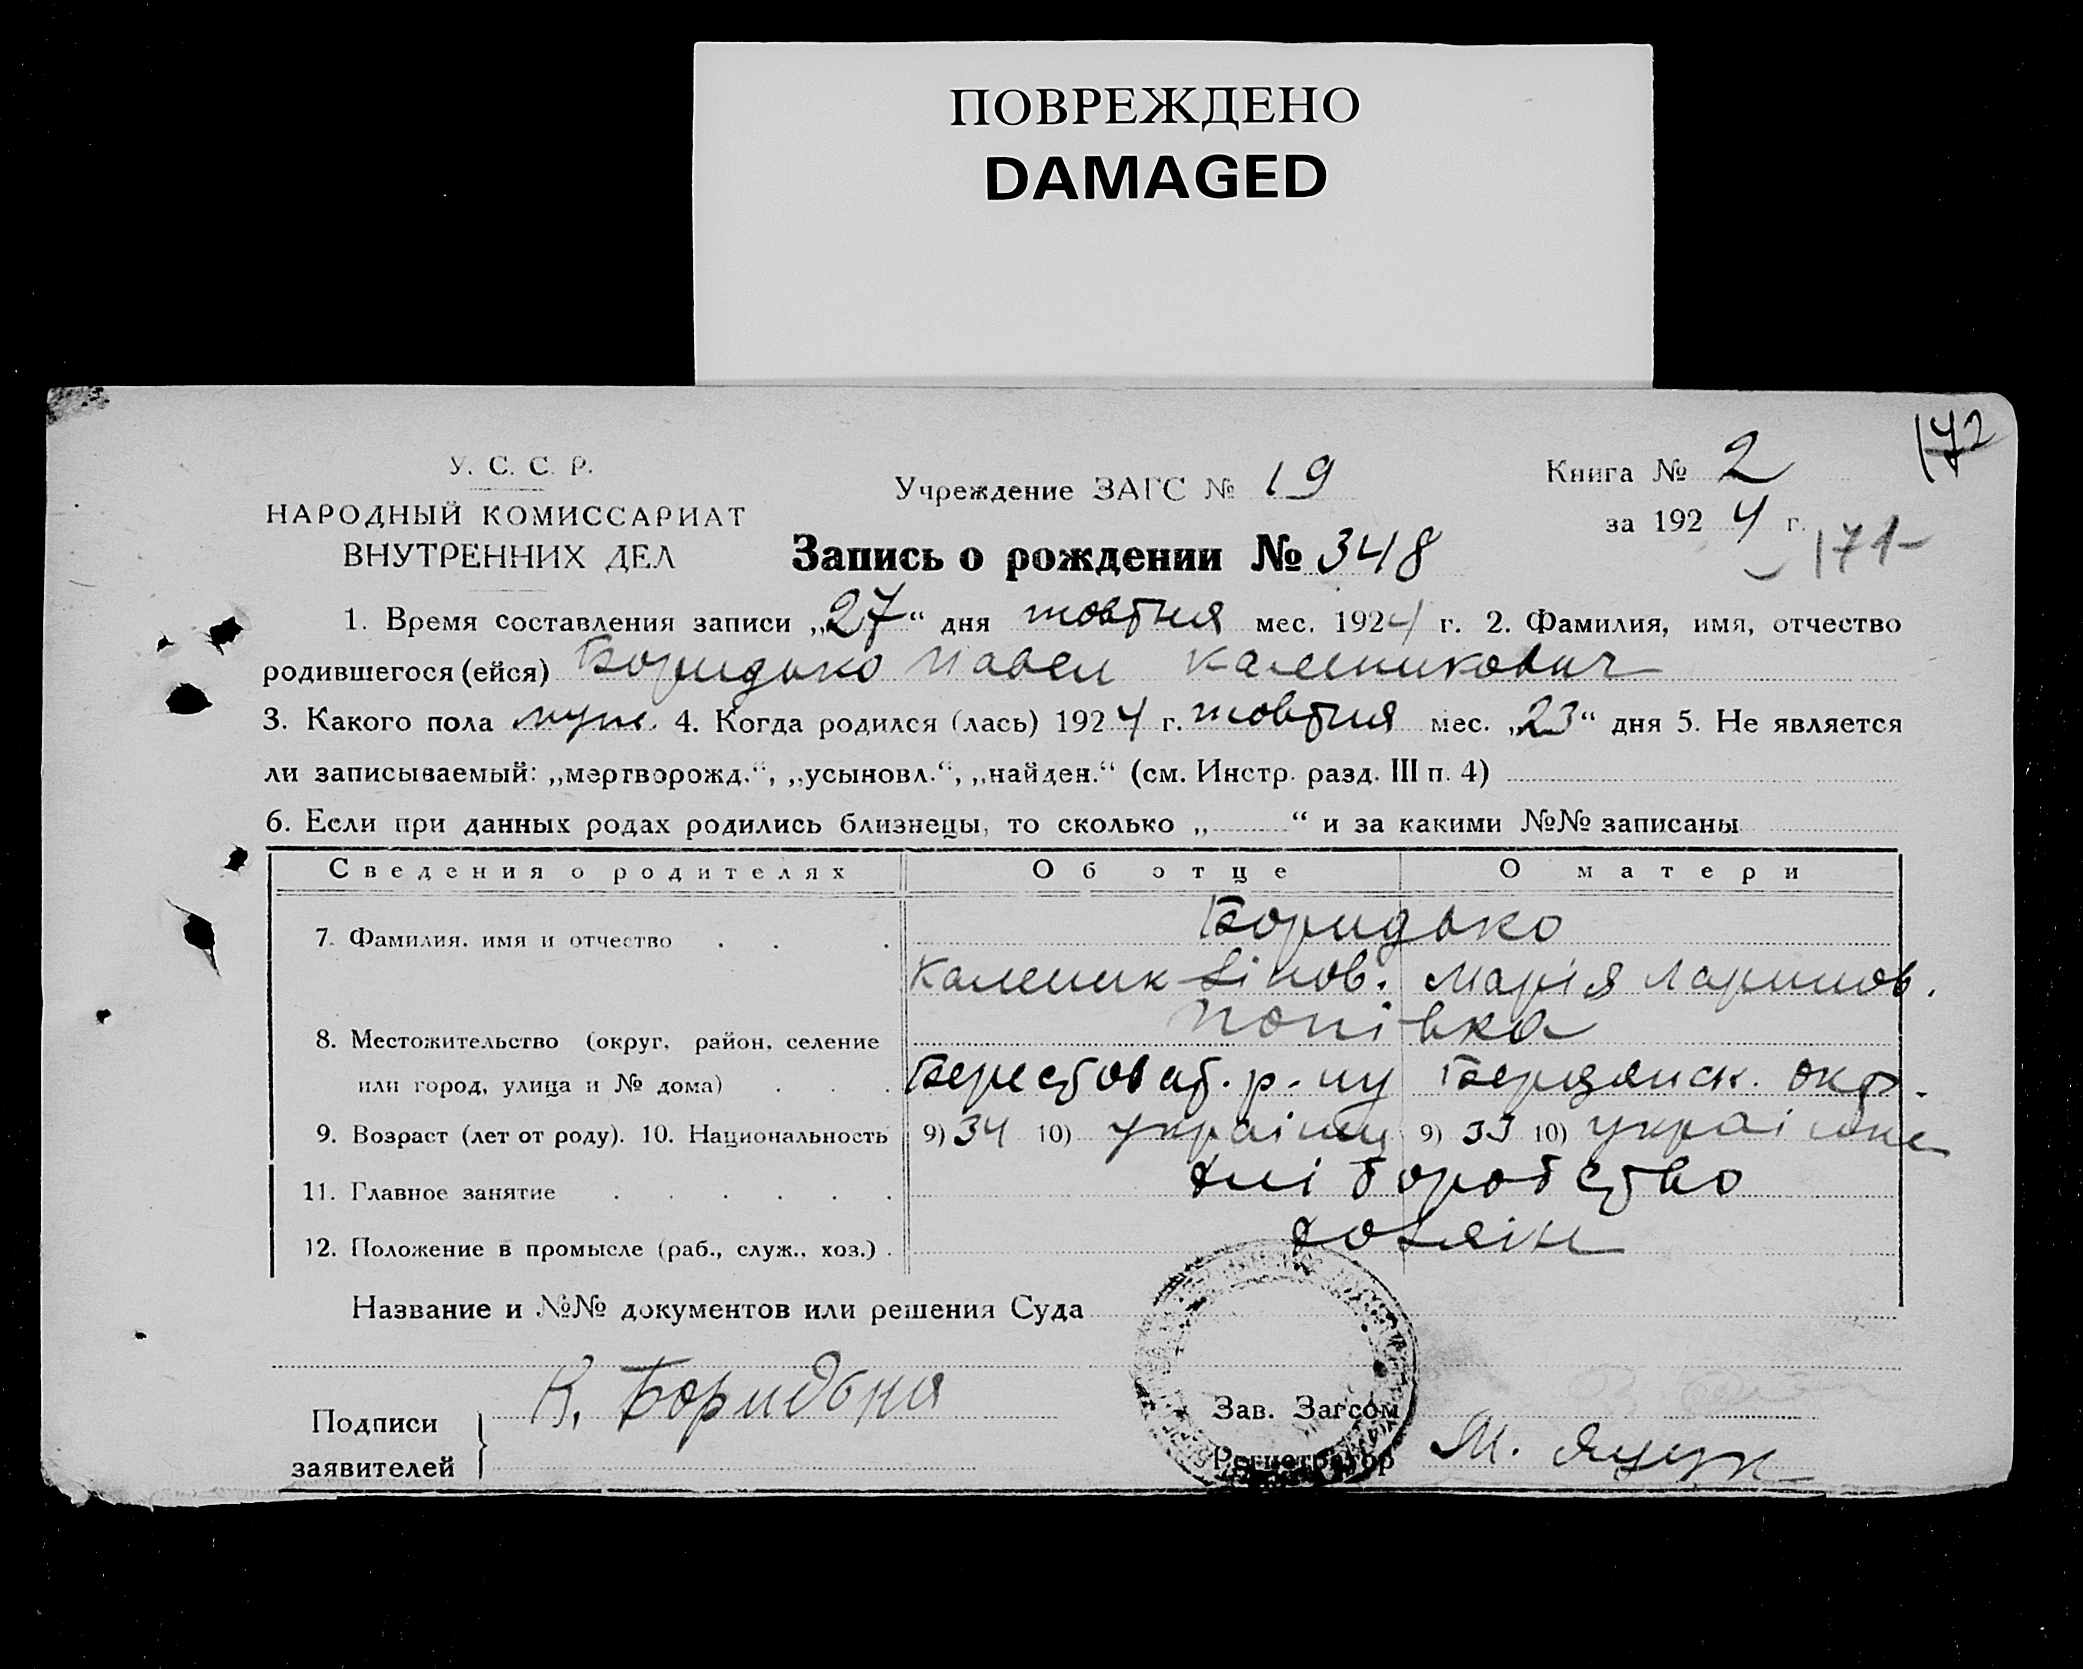 ПОВРЕЖДЕНО
DAMAGED
172
У. С. С. Р.
НАРОДНЫЙ КОМИССАРИАТ
ВНУТРЕННИХ ДЕЛ
Учреждение ЗАГС № 19
Запись о рождении № 348
Книга № 2
за 1924 г.
171-
1. Время составления записи „27“ дня жовтня мес. 1924 г. 2. Фамилия, имя, отчество
родившегося (ейся) Боридько Павел Каленикович
3. Какого пола муж. 4. Когда родился (лась) 1924 г. жовтня мес. „23“ дня 5. Не является
ли записываемый: „мертворожд.“, „усыновл.“, „найден.“ (см. Инстр. разд. III п. 4)
6. Если при данных родах родились близнецы, то сколько „ “ и за какими №№ записаны
Сведения о родителях Об отце О матери
7. Фамилия, имя и отчество Боридько
Каленик Марія
8. Местожительство (округ, район, селение Попівка
или город, улица и № дома) Берестоват. р-ну Бердянск. окр.
9. Возраст (лет от роду). 10. Национальность 9) 34 10) українці 9) 33 10)
11. Главное занятие хліборобство
12. Положение в промысле (раб., служ., хоз.) хозяін
Название и №№ документов или решения Суда
Подписи К. Боридько Зав. Загсом
заявителей Регистратор М.